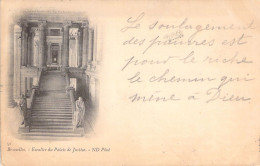 Le soulagement
des pauvres est
pour le riche
le chemin qui
mène à Dieu
Bruxelles. - Escalier du Palais de Justice. - ND Phot